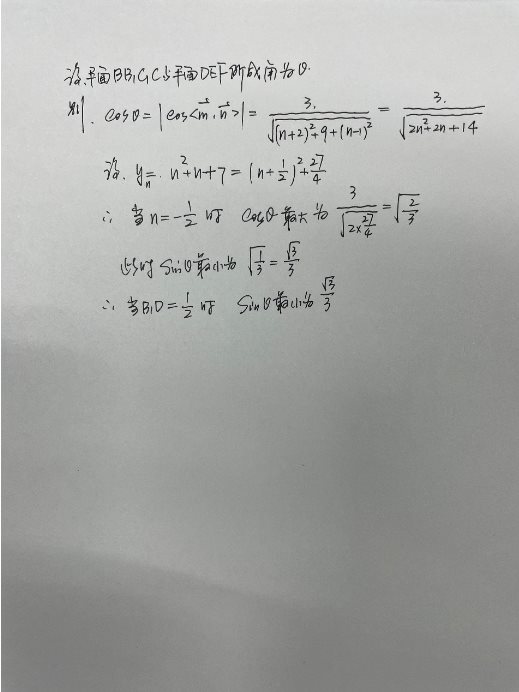 设平面BB₁C₁C与平面DEF所成角为θ.
则. cosθ = |cos<m⃗,n⃗>| = 3./√((n+2)²+9+(n-1)²) = 3./√(2n²+2n+14)
设. yₙ= n²+n+7 = (n+1/2)²+27/4
∴ 当n=-1/2时 cosθ最大为 3/√(2×27/4) = √(2/3)
此时 sinθ最小为 √(1/3) = √3/3
∴ 当B₁D=1/2时 sinθ最小为 √3/3